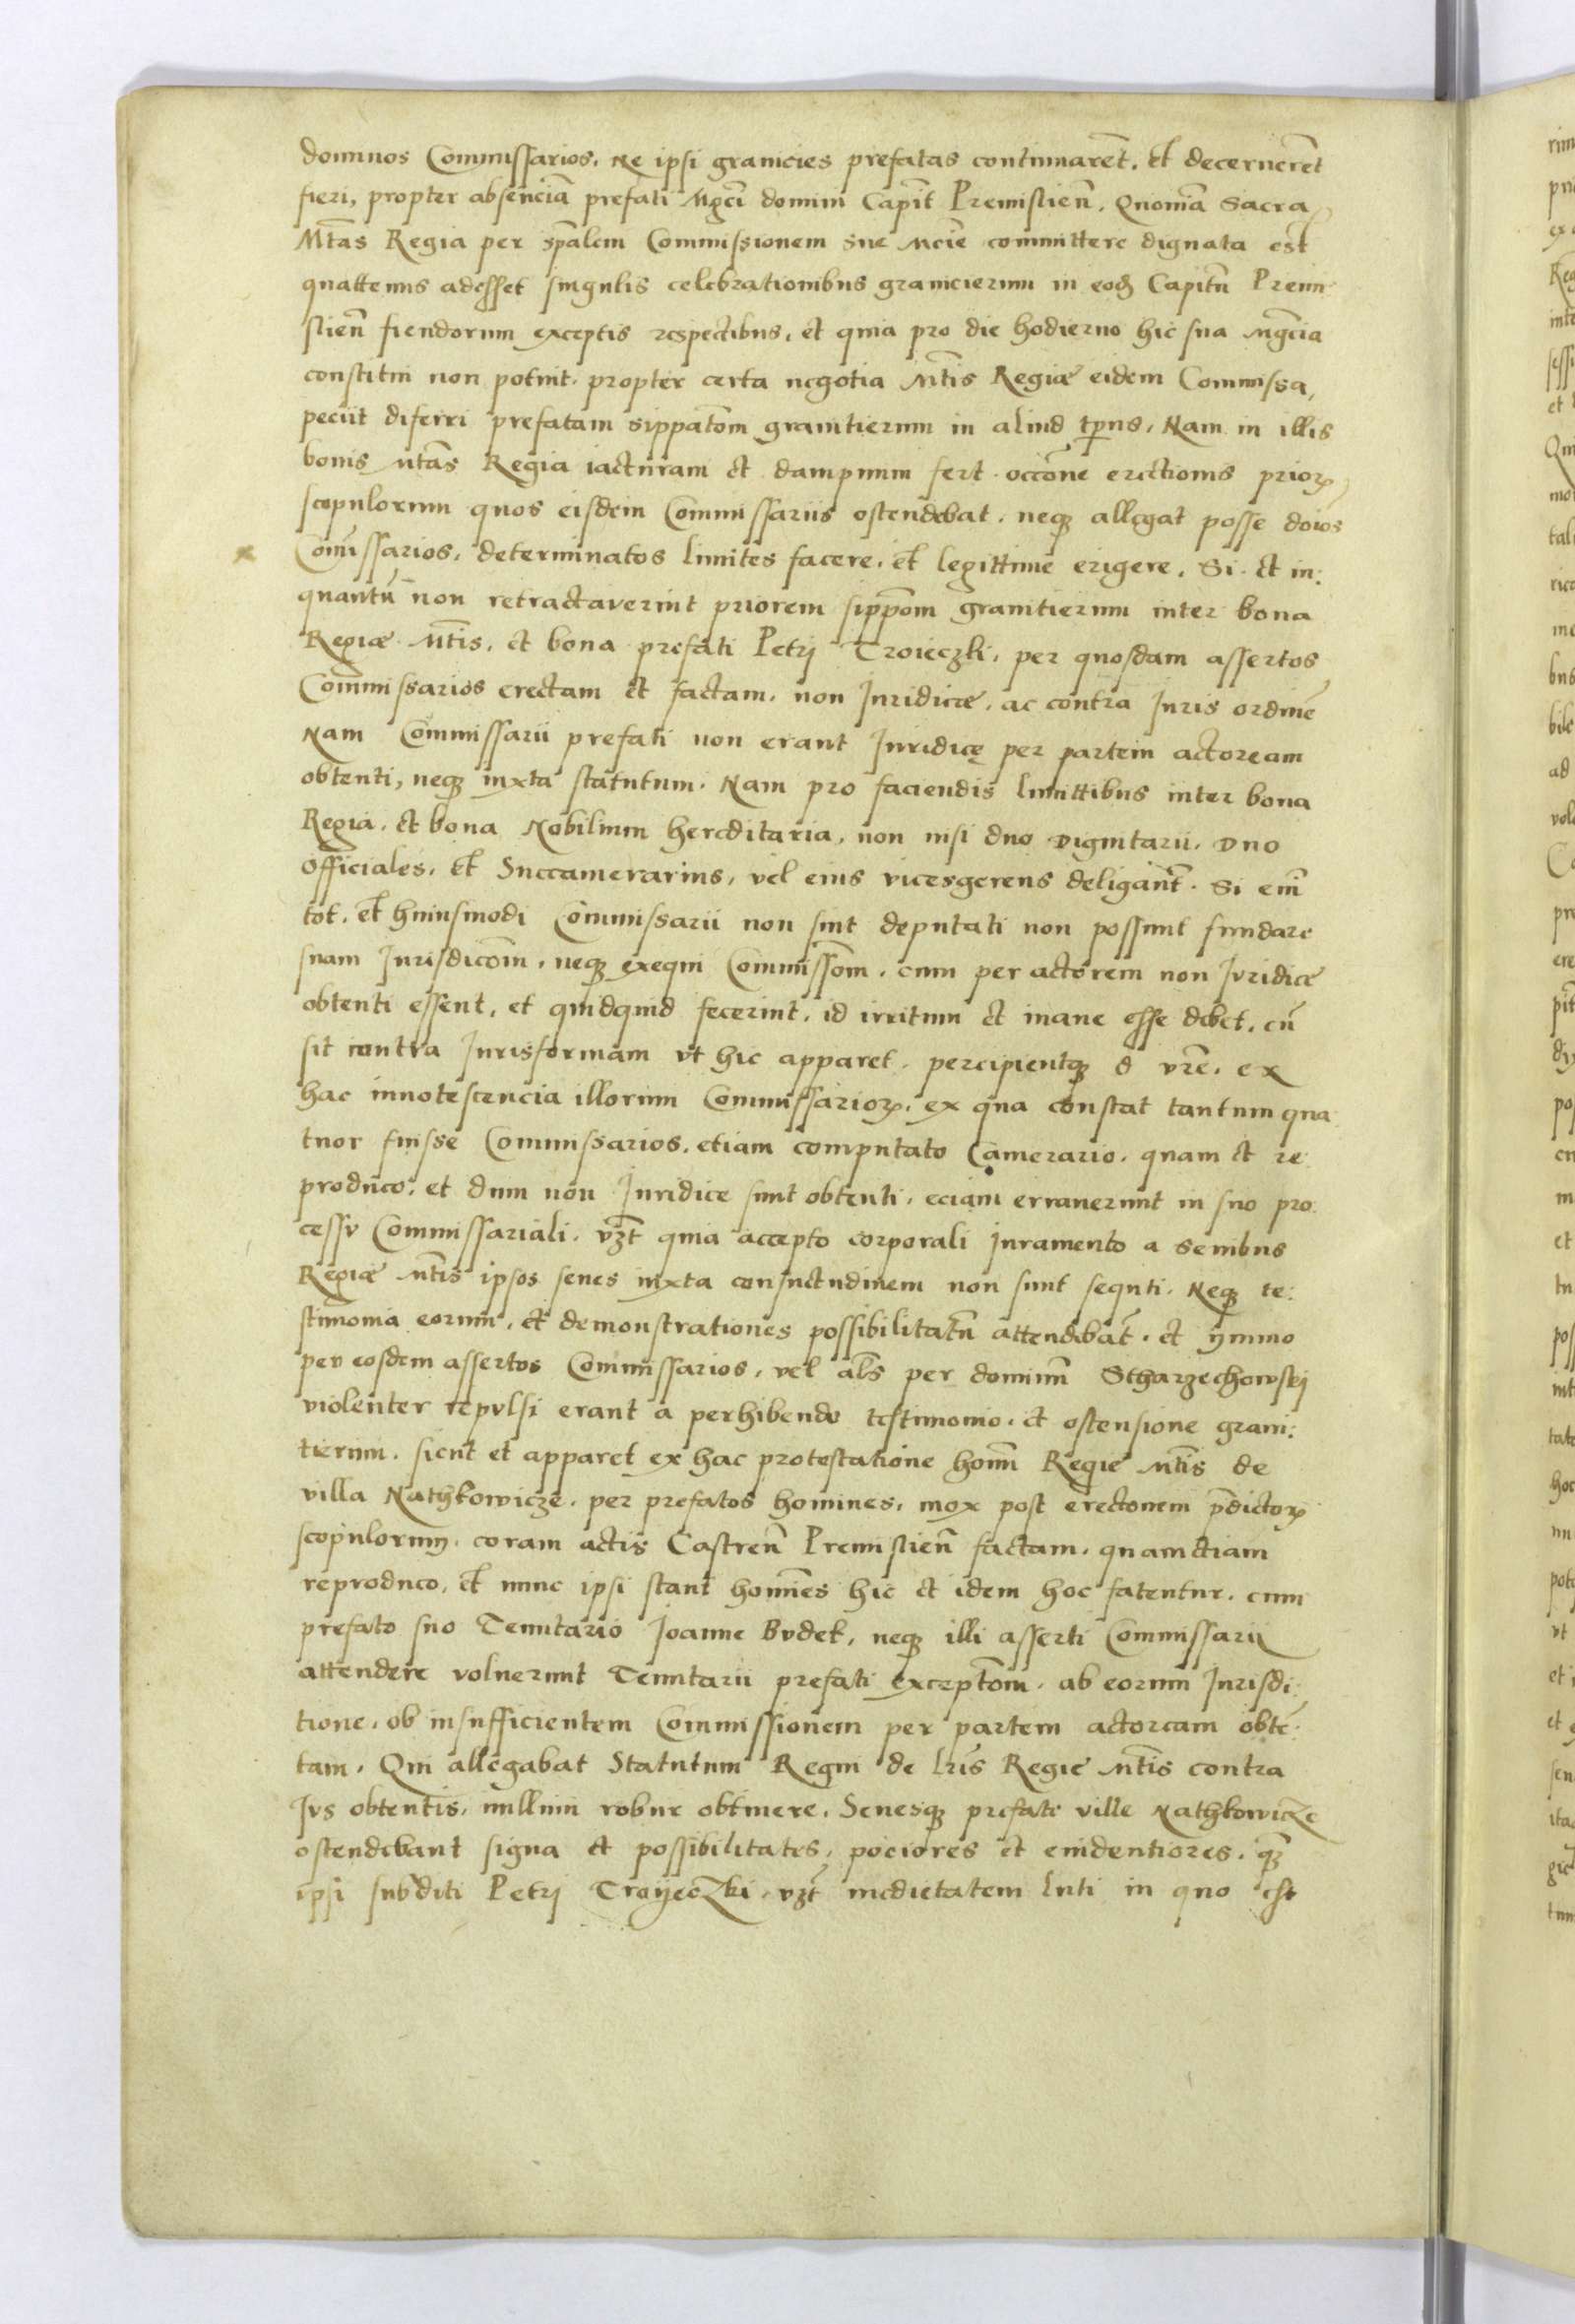 dominos Commissarios. Ne ipsi granicies prefatas continuarēt. et decernerēt
fieri, propter absenciā prefati Mgci domini Capit̄ Premislien̄. Quoniā Sacra
Mt̄as Regia per sp̄alem Commissionem sue Mcie committere dignata est
quattenus adesset singulis celebrationibus granicierum in eodē Capit̄n Premi
slien̄ fiendorum exceptis respectibus, et quia pro die hodierno hic sua Mgcia
constitui non potuit. propter certa negotia Mt̄is Regiæ eidem Commissa,
peciit diferri prefatam sippat̄om granitierum in aliud tp̄us, Nam in illis
bonis Mt̄as Regia iacturam et dampnum fert occōne erectionis prioꝝ
scopulorum quos eisdem Commissariis ostendebat. neqꝫ allegat posse doīos
Com̄issarios, determinatos limites facere. et legittime erigere. Si et in:
quantū non retractaverint priorem sipp̄om granitierum inter bona
Regiæ Mt̄is, et bona prefati Petri Troieczki, per quosdam assertos
Commissarios erectam et factam. non Juridicæ. ac contra Juris ordinē
Nam Commissarii prefati non erant Juridicę per partem actoream
obtenti, neqꝫ iuxta statutum. Nam pro faciendis limittibus inter bona
Regia. et bona Nobilium hereditaria, non nisi duo Dignitarii. Duo
officiales. et Succamerarius, vel eius vicesgerens deligant̄. Si em̄
tot. et huiusmodi Commissarii non sint deputati non possunt fundare
suam Jurisdicōm. neqꝫ exequi Commiss̄om. cum per actorem non Jvridicæ
obtenti essent, et quidquid fecerint. id irritum et inane esse debet. cū
sit contra Jurisformam vt hic apparet. percipientqꝫ d vrē. ex
hac innotescencia illorum Commissarioꝝ. ex qua constat tantum qua
tuor fuisse Commissarios. etiam computato Camerario. quam et re:
produco. et dum non Juridice sunt obtenti, eciam erraverunt in suo pro:
cessv Commissariali. vꝫt quia accepto corporali Juramento a senibus
Regiæ Mt̄is ipsos senes iuxta consuetudinem non sunt sequti. Neqꝫ te:
stimonia eorum, et demonstrationes possibilitatū attendebāt. et ymmo
per eosdem assertos Commissarios, vel al̄s per dominū Stharzechowskj
violenter repvlsi erant a perhibendo testimonio. et ostensione grani:
tierum. sicut et apparet ex hac protestatione hoīm Regie Mt̄is de
villa Nathkowicze. per prefatos homines, mox post erectonem p̄dictoꝝ
scopulorum. coram actis Castren̄ Premislien̄ factam. quam etiam
reproduco, et nunc ipsi stant homines hic et idem hoc fatentur. cum
prefato suo Tenutario Joanne Bvdek, neqꝫ illi asserti Commissarij
attendere voluerunt Tenutarii prefati except̄om. ab eorum Jurisdi:
tione. ob insufficientem Commissionem per partem actoream obtē:
tam. Qui allegabat Statutum Regni de lrīs Regie Mt̄is contra
Jvs obtentis, nullum robur obtinere. Senesqꝫ prefate ville Nathkowicze
ostendebant signa et possibilitates, pociores et euidentiores. qꝫ
ipsi subditi Petri Troyeczki. vꝫt medietatem luti in quo est